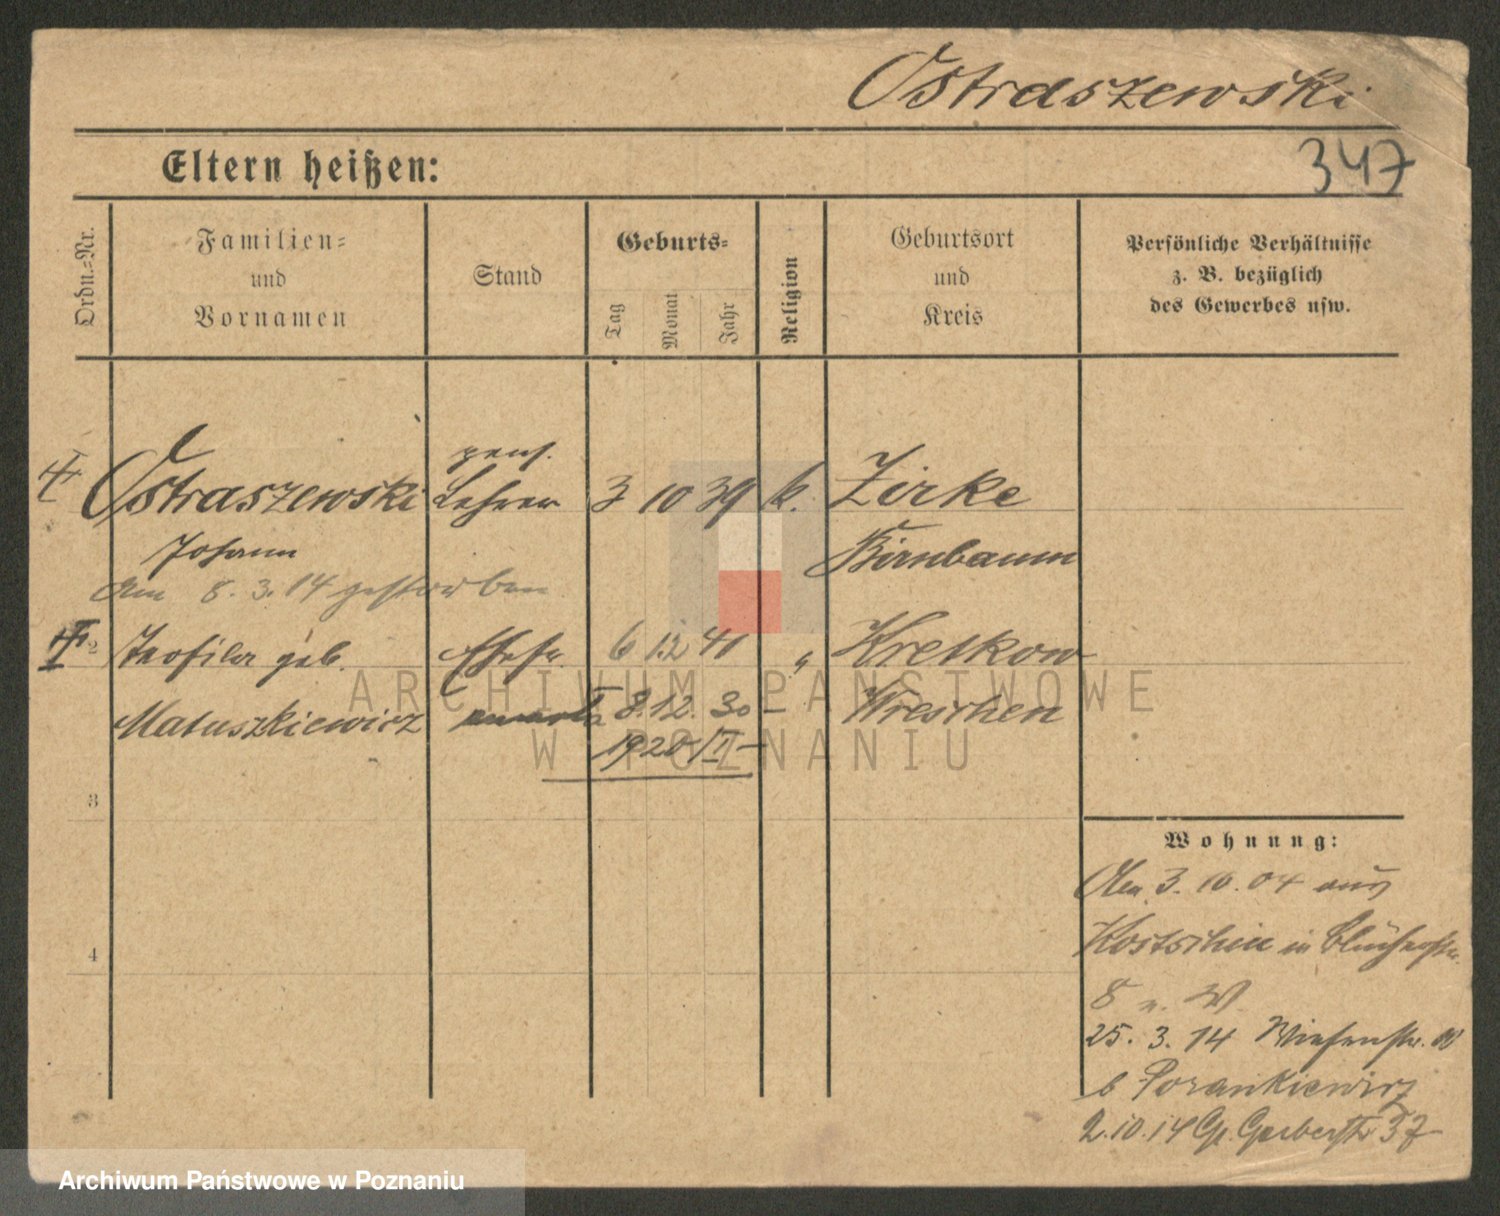 Ostraszewski
Eltern heißen:
347
Ordn.=Nr.
Familien=
und
Vornamen
Stand
Geburts=
Tag
Monat
Jahr
Religion
Geburtsort
und
Kreis
Persönliche Verhältnisse
z. B. bezüglich
des Gewerbes usw.
pens.
Ostraszewski Lehrer 3 10 39 k. Zirke
Johann Birnbaum
Am 8. 3. 14 gestorben
2 Teofila geb. Ehefr. 6 12 41 " Kretkow
Matuszkiewicz umarła 8. 12. 30 – Wreschen
1920
3
4
Wohnung:
Am 3. 10. 04 aus
Kostschin in Blücherstr.
8 n. W.
25. 3. 14 Wiesenstr.
b Porankiewicz
2.10.14 Gr. Gerberstr 37
ARCHIWUM PAŃSTWOWE
W POZNANIU
Archiwum Państwowe w Poznaniu